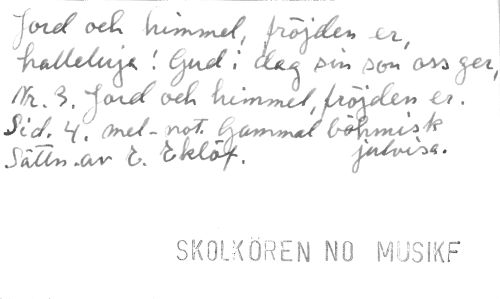 Jord och himmel, fröjden er,
halleluja! Gud i dag sin son oss ger,
Nr. 3. Jord och himmel, fröjden er.
Sid. 4. mel-not. Gammal böhmisk
Sättn. av E. Eklöf. julvisa.
SKOLKÖREN NO MUSIKF